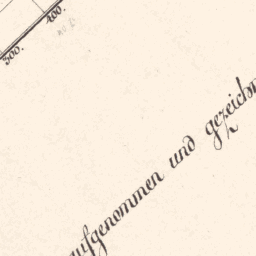 300. 400.
aufgenommen und gezeichn